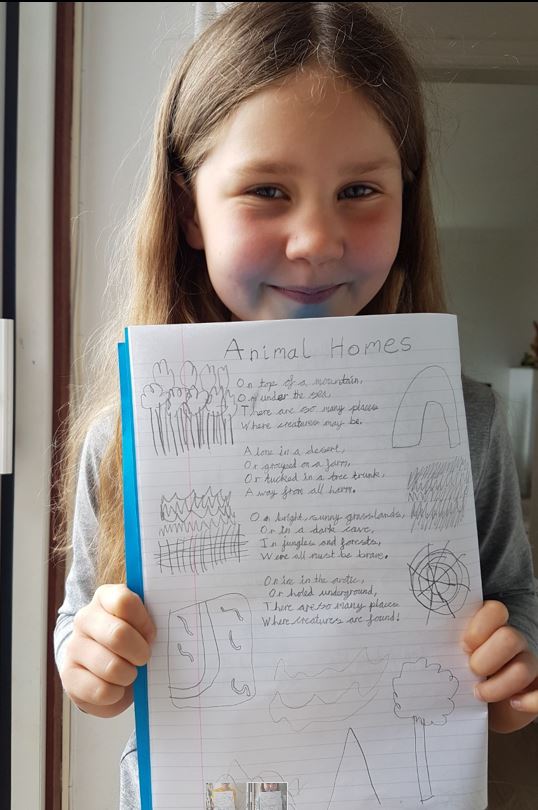 Animal Homes
On top of a mountain,
Or under the sea,
There are so many places
Where creatures may be.
Alone in a desert,
Or grouped on a farm,
Or tucked in a tree trunk,
Away from all harm.
On bright, sunny grasslands,
Or in a dark cave,
In jungles and forests,
We all must be brave.
On ice in the arctic,
Or holed underground,
There are so many places
Where creatures are found!